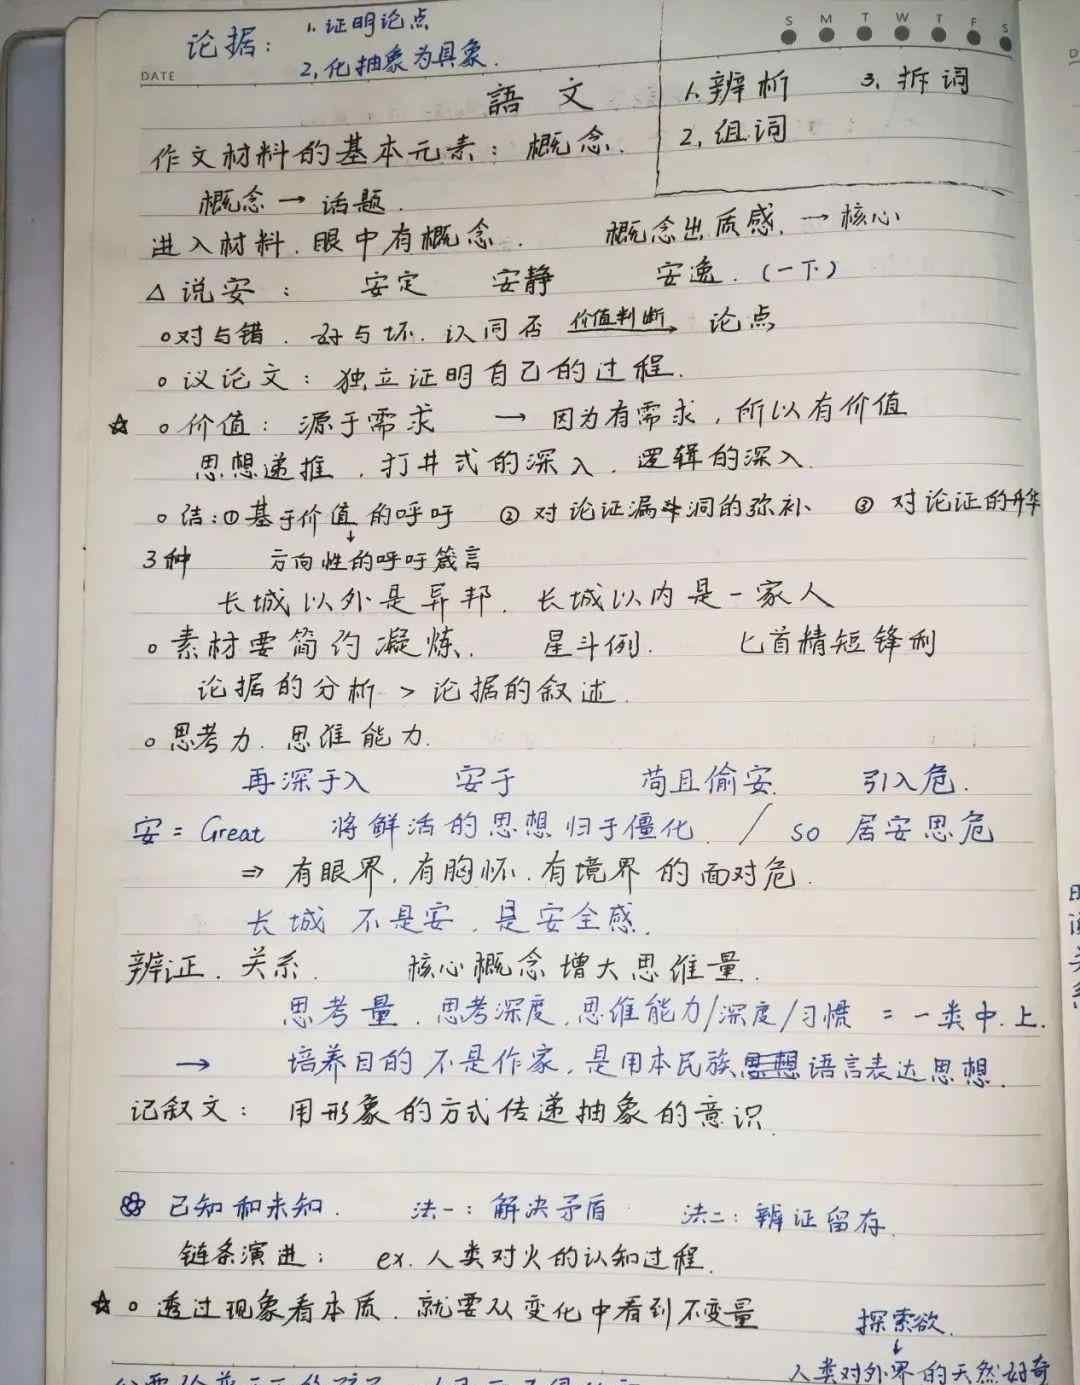 论据: 1.证明论点
2,化抽象为具象.
S M T W T F S
DATE
語 文
1.辨析 3.拆词
2,组词
作文材料的基本元素: 概念.
概念→话题.
进入材料.眼中有概念. 概念出质感.→核心
△说安: 安定 安静 安逸.(一下)
。对与错.好与坏.认同否 价值判断→ 论点
。议论文: 独立证明自己的过程.
☆。价值: 源于需求 → 因为有需求,所以有价值
思想递推,打井式的深入.逻辑的深入.
。结:①基于价值的呼吁 ②对论证漏洞的弥补、 ③对论证的
3种 ↓方向性的呼吁箴言
长城以外是异邦.长城以内是一家人
。素材要简约凝炼. 星斗例. 匕首精短锋利
论据的分析 > 论据的叙述.
。思考力.思维能力.
再深于入 安于 苟且偷安. 引入危.
安 = Great 将鲜活的思想归于僵化. / so 居安思危
⇒ 有眼界.有胸怀.有境界的面对危.
长城 不是安.是安全感.
辨证.关系. 核心概念增大思维量.
思考量.思考深度.思维能力/深度/习惯 = 一类中.上.
→ 培养目的不是作家,是用本民族思想语言表达思想.
记叙文: 用形象的方式传递抽象的意识.
已知和未知. 法一: 解决矛盾 法二: 辨证留存.
链条演进: ex.人类对火的认知过程.
☆。透过现象看本质.就要从变化中看到不变量
探索欲.
↓
人类对外界的天然好奇